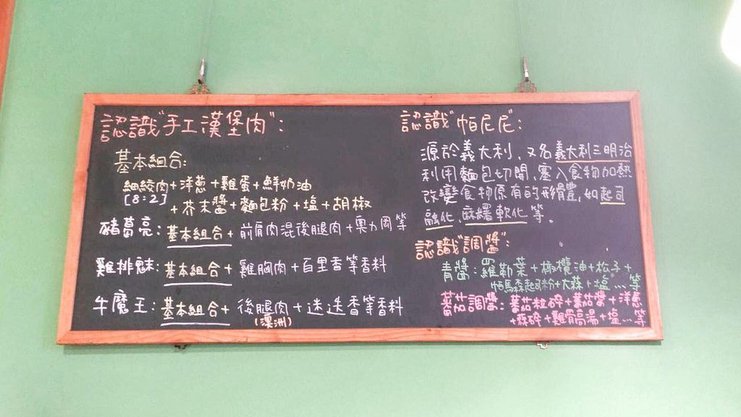 認識"手工漢堡肉":
基本組合:
細絞肉+洋蔥+雞蛋+鮮奶油
[8:2]
+芥末醬+麵包粉+塩+胡椒
豬葛亮:基本組合+前肩肉混後腿肉+奧力岡等
雞排魅:基本組合+雞胸肉+百里香等香料
牛魔王:基本組合+後腿肉+迷迭香等香料
(澳洲)
認識"帕尼尼":
源於義大利,又名義大利三明治
利用麵包切開,塞入食物加熱
改變食物原有的形體,如起司
融化.麻糬軟化等。
認識"調醬":
青醬:羅勒葉+橄欖油+松子+
帕馬森起司粉+大蒜+塩…等
蕃茄調醬:蕃茄粒碎+蕃茄醬+洋蔥
+蒜碎+雞骨高湯+塩…等